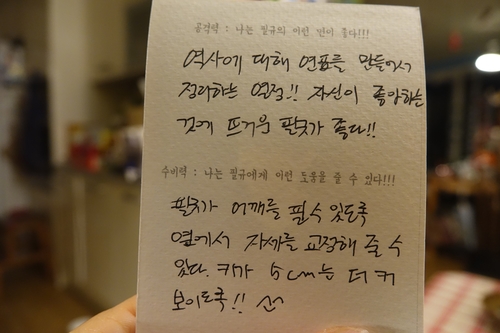 공격력 : 나는 필규의 이런 면이 좋다!!!
역사에 대해 연표를 만들어서
정리하는 열정!! 자신이 좋아하는
것에 뜨거운 필규가 좋다!!
수비력 : 나는 필규에게 이런 도움을 줄 수 있다!!!
필규가 어깨를 필 수 있도록
옆에서 자세를 교정해 줄 수
있다. 키가 5cm는 더 커
보이도록!!